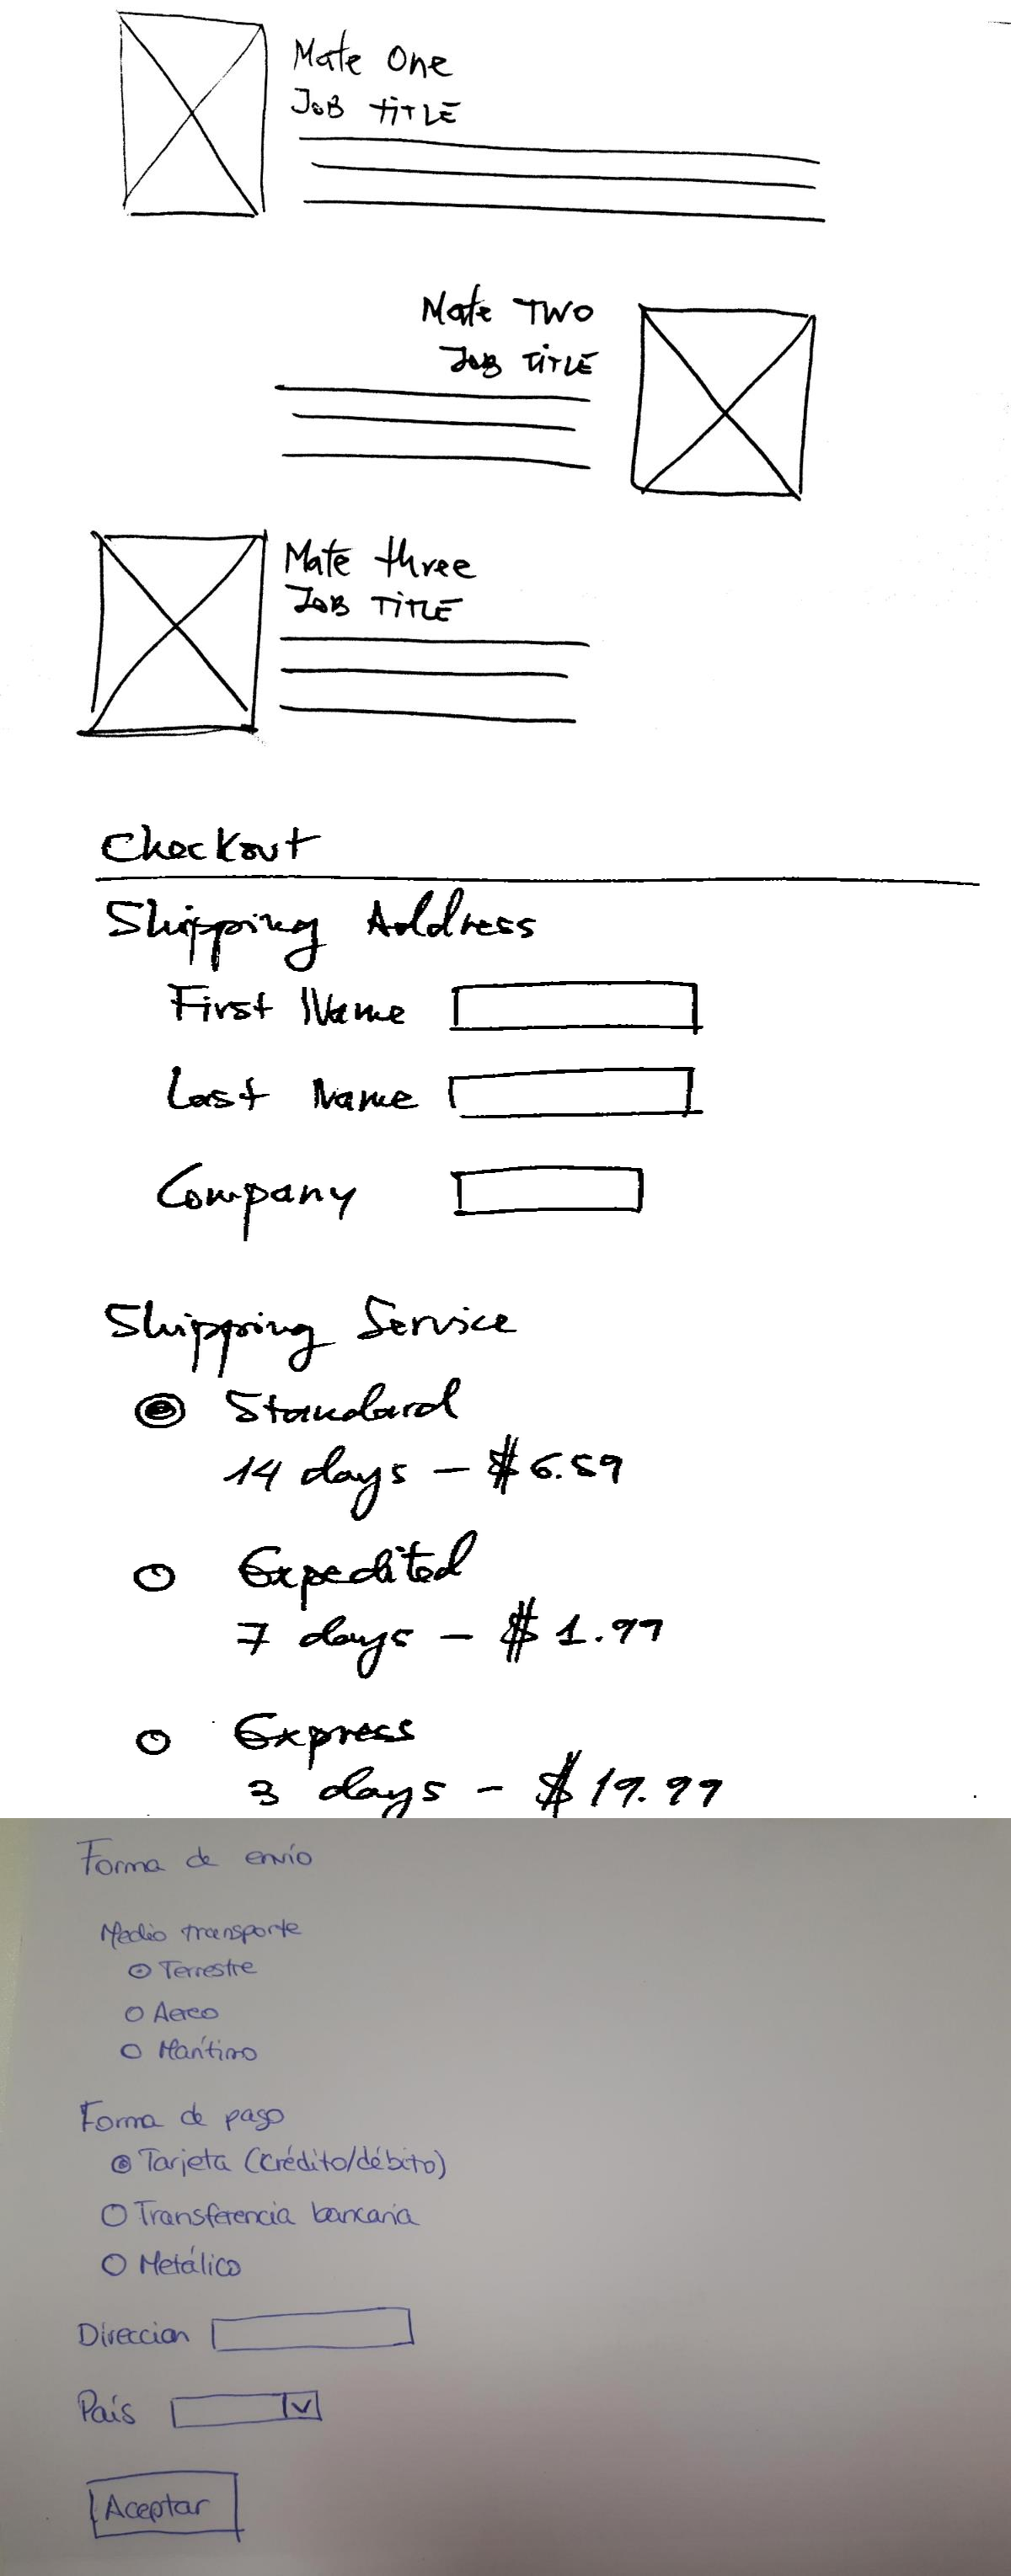 Mate One
JOB TITLE
Mate TWO
JOB TITLE
Mate three
JOB TITLE
Checkout
Shipping Address
First Name
Last Name
Company
Shipping Service
Standard
14 days - $6.59
Expedited
7 days - $1.99
Express
3 days - $19.99
Forma de envío
Medio transporte
Terrestre
Aereo
Marítimo
Forma de pago
Tarjeta (crédito/débito)
Transferencia bancaria
Metálico
Direccion
País
Aceptar